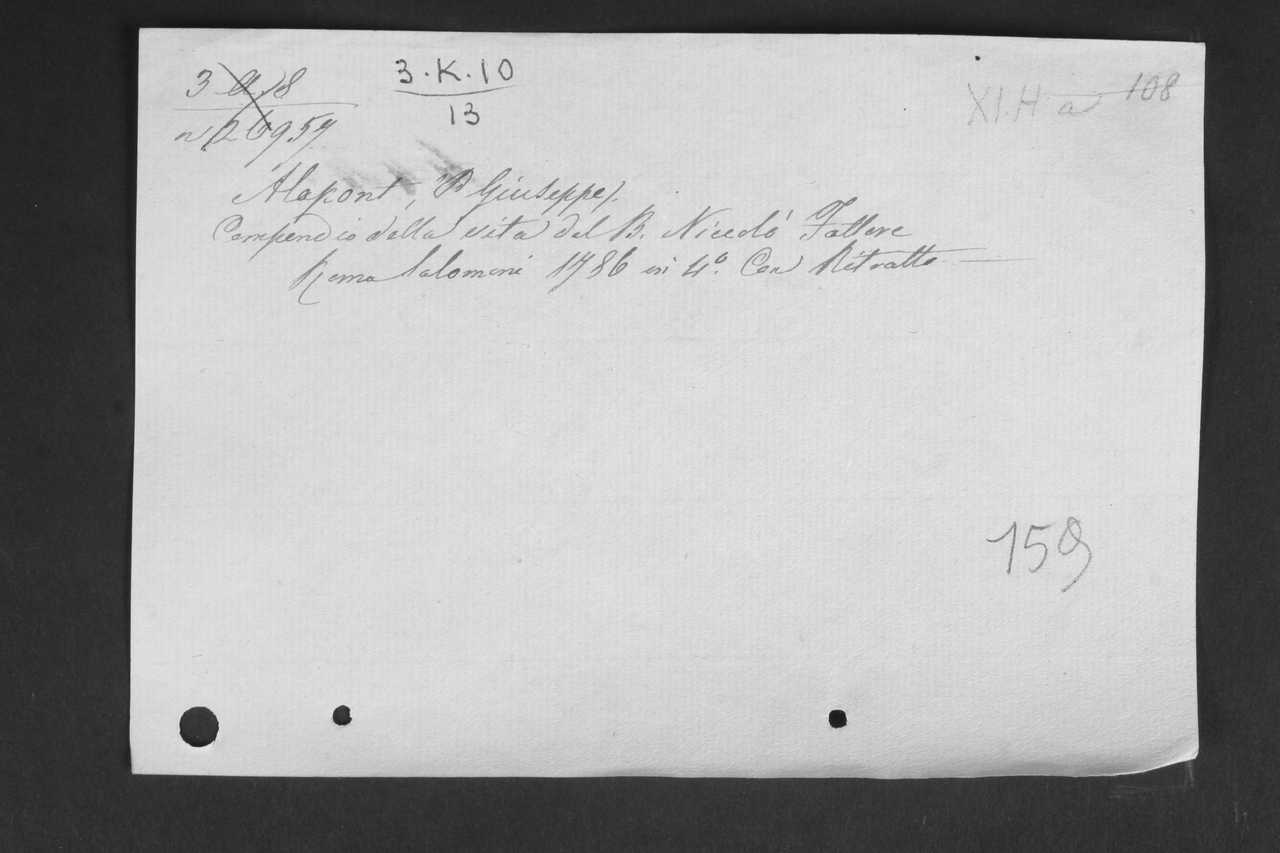 3 A 8
3.K.10
13
XI.H a 108
n 26957
Alapont, (P. Giuseppe).
Compendio della vita del B. Niccolò Fattore
Roma Salomoni 1786 in 4º. Con Ritratto
159